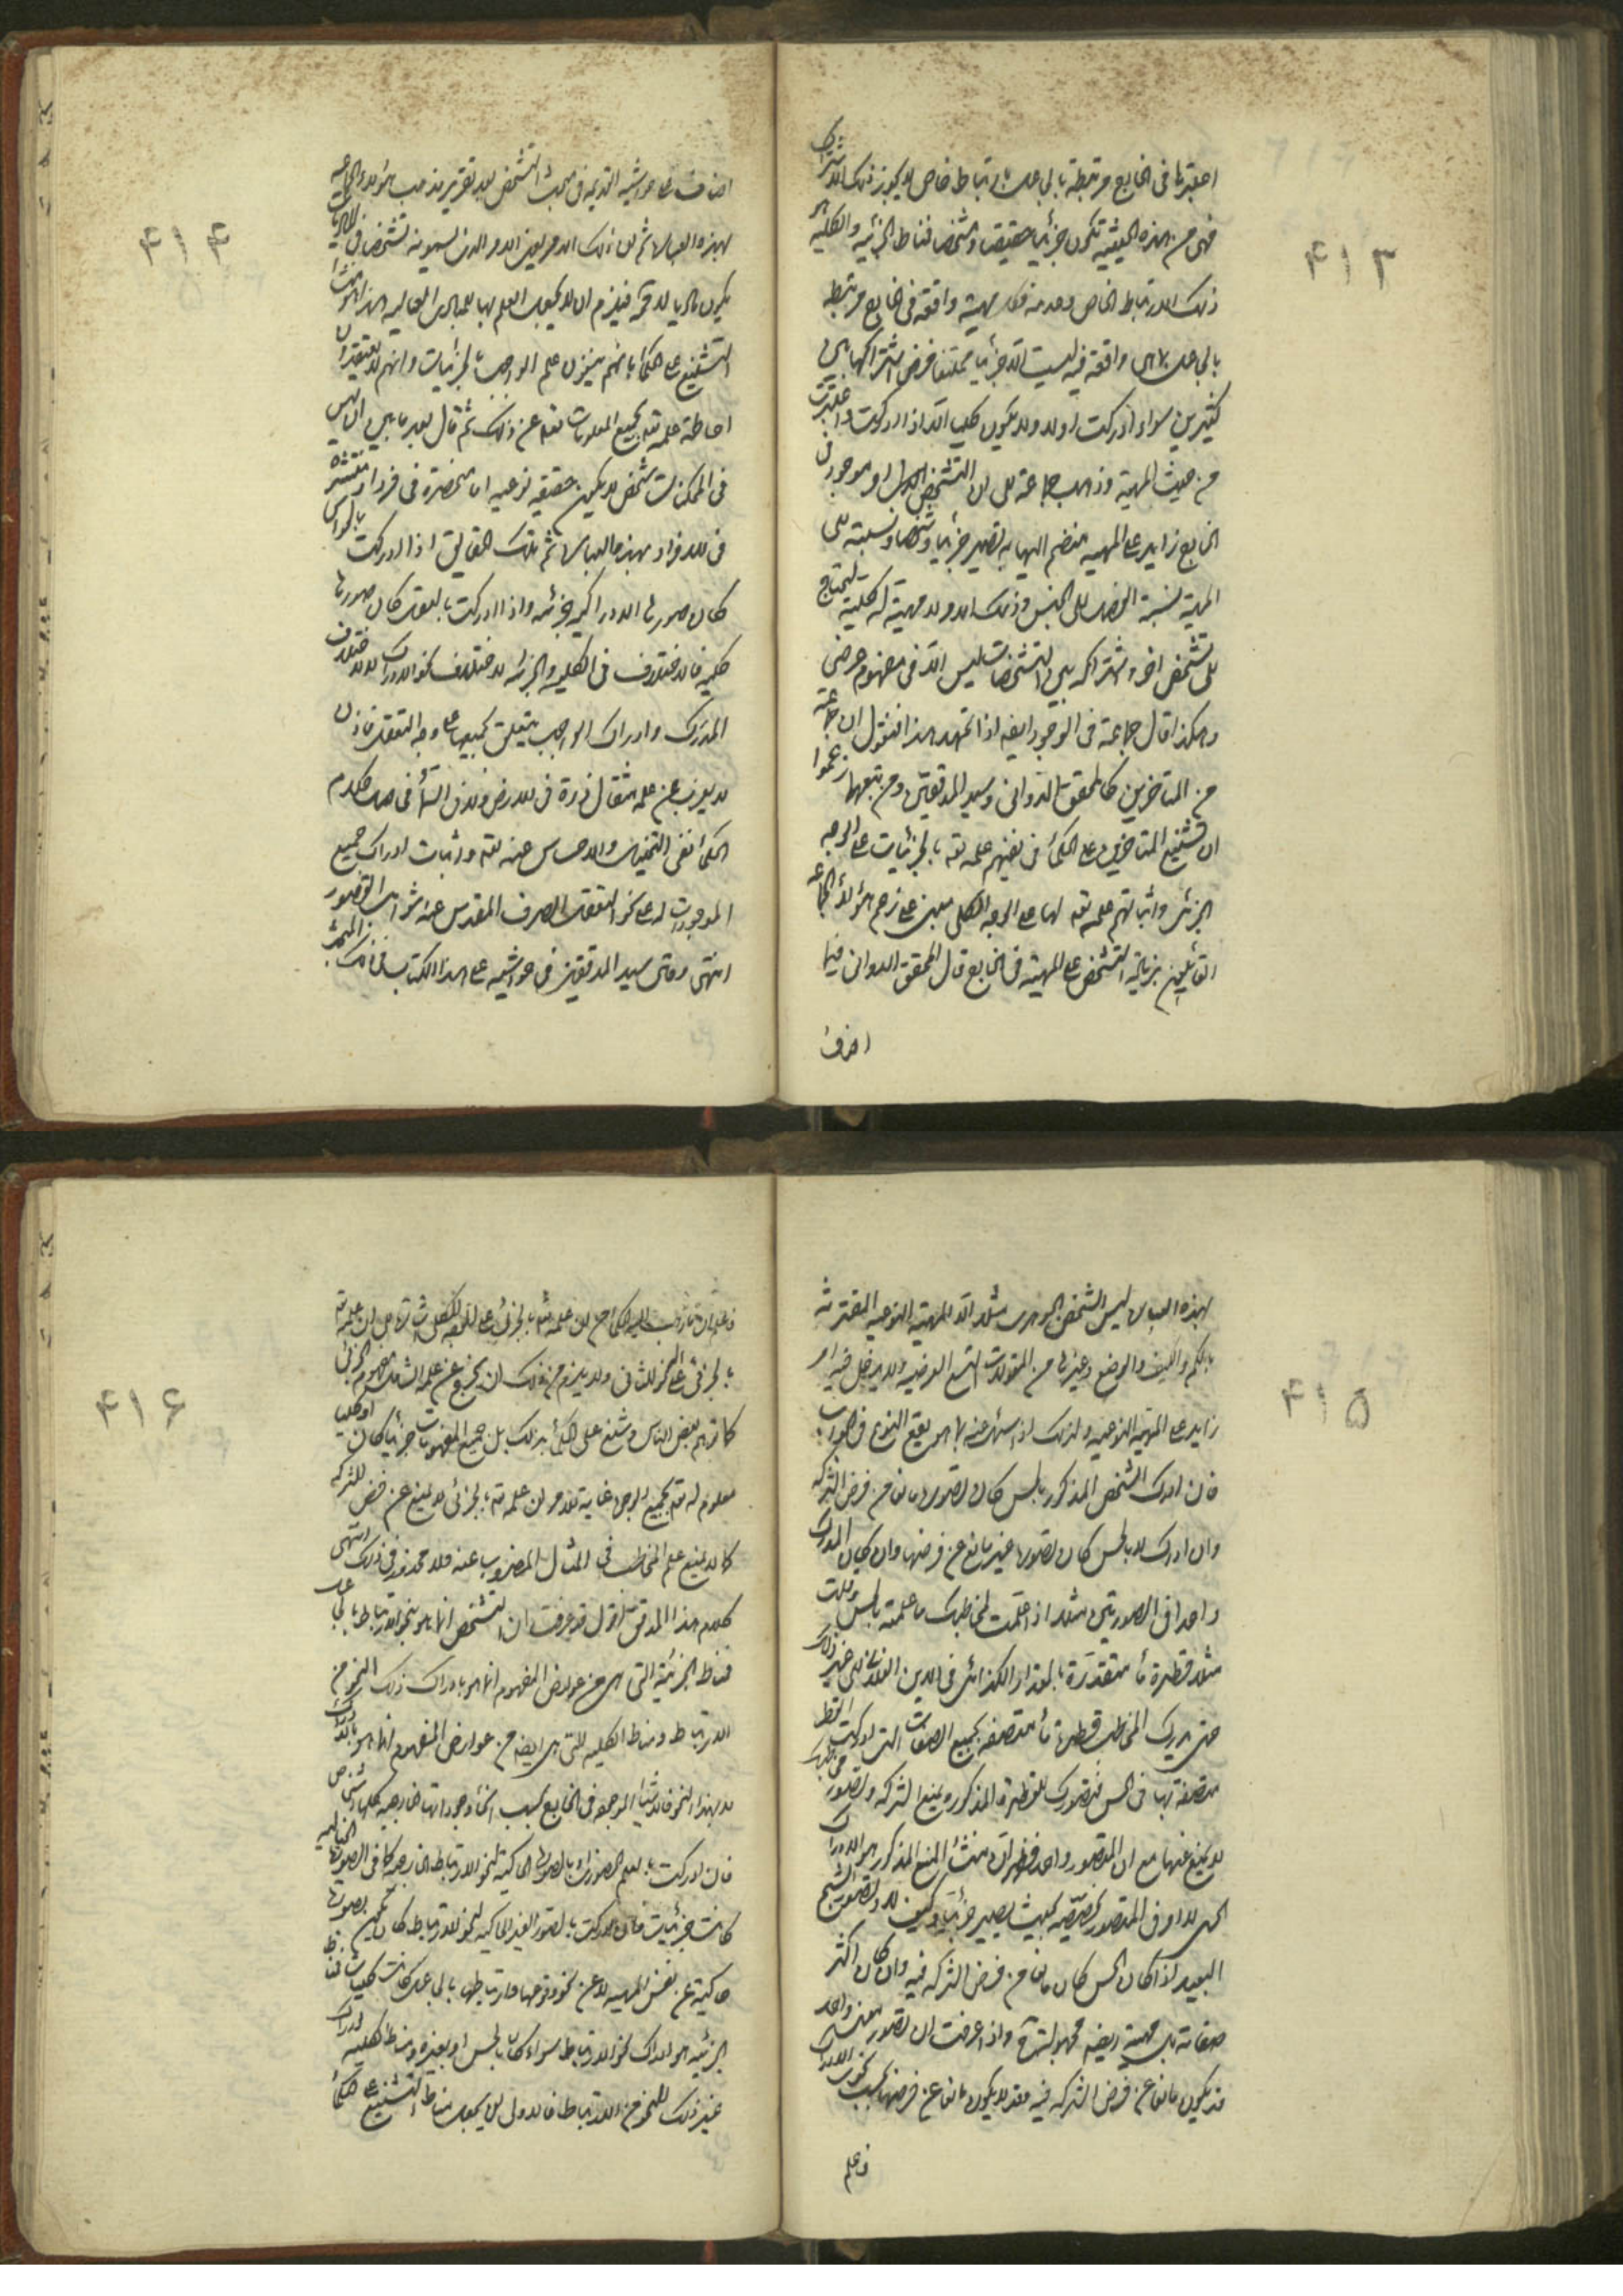 ٤١٣
اعتبرتها فى الخارج مرتبطة بالجاعل بارتباط خاص لا يجوز ذلك الاشتراك
فهى من هذه الحيثية تكون جزئيا حقيقيا و شخصا فمناط الجزئيه والكليه هو
ذلك الارتباط الخاص وعدمه فكل مهية واقعة فى الخارج مرتبطه
بالجاعل بما هى واقعة فيه ليست الا جزئيا ممتنعا فرض اشتراكها بين
كثيرين سواء ادركت اولا ولا يكون كليا الا اذا ادركت واعتبرت
من حيث المهية وذهب جماعة الى ان التشخص امر موجود فى
الخارج زايد على المهيه منضم اليها به تصير جزئيا و شخصا ونسبته الى
المهية نسبة الفصل الى الجنس وذلك الامر لا مهية له كلية ليحتاج
الى تشخص اخر واشتراكه بين التشخصات ليس الا فى مفهوم عرضى
وهكذا قال جماعة فى الوجود ايضا اذا تمهد هذا فنقول ان جماعة
من المتاخرين كالمحقق الدوانى وسيد المدققين ومن تبعهما زعموا
ان تشنيع المتاخرين على الحكماء فى نفيهم علمه تعه بالجزئيات على الوجه
الجزئى واثباتهم علمه تعه لها على الوجه الكلى مبنى على زعم هؤلاء الجماعه
القائلين بزيادة التشخص على المهية فى الخارج قال المحقق الدوانى فيما
اضاف
٤١٤
اضاف على حواشيه القديمه فى مبحث التشخص بعد تقرير مذهب هؤلاء الجماعه
بهذه العباره ثم ان ذلك الامر يعنى الامر الذى يسمونه تشخصا فى الماديات
يكون ماديا لا محه فيلزم ان لا يحيط العلم بها للمبادى العاليه هذا هو منشأ
التشنيع على الحكماء بانهم ينفون علم الواجب بالجزئيات وانهم لا يعتقدون
احاطة علمه تعه بجميع المعلومات تعه عن ذلك ثم قال بعد ما بين ان ليس
فى الممكنات شخص لا يكون حقيقيه نوعيه اما منحصرة فى فرد او منتشره
فى الافراد بهذه العباره ثم تلك الحقايق اذا ادركت بالحواس
كان صورتها الادراكيه جزئيه واذا ادركت بالعقل كان صورتها
كليه فالاختلاف فى الكليه والجزئيه لاختلاف نحو الادراك لا لاختلاف
المدرك وادراك الواجب يتعلق بجميعها على وجه التعقل فاذن
لا يعزب عن علمه مثقال ذرة فى الارض ولا فى السماء فحاصل كلام
الحكماء نفى التخيل والاحساس عنه تعه واثبات ادراك جميع
الموجودات له على نحو التعقل الصرف المقدس عن شوائب القصور
انتهى وقال سيد المدققين فى حواشيه على هذا الكتاب فى ذلك المبحث
٤١٥
بهذه العباره ليس الشخص الجوهرى مثلا الا المهية النوعيه المقترنه
بالكم والكيف والوضع وغيرها من المقولات التسع العرضيه ولا يدخل فيه امر
زايد على المهيه النوعيه ولذلك اذا سئل عنه بما هو يقع النوع فى الجواب
فان ادرك الشخص المذكور بالحس كان تصوره مانعا من فرض الشركه
وان ادرك لا بالحس كان تصوره غير مانع عن فرضها وان كان المدرك
واحدا فى الصورتين مثلا اذا علمت لمخاطبك ما علمته بالحس وقلت
مثلا قطرة ماء متقدرة بالمقدار الكذائى فى المكان الفلانى الى غير ذلك
حتى يدرك المخاطب قطرة ماء متصفه بجميع الصفات التى ادركت القطرة
متصفة بها فى الحس فتصورك للقطرة المذكوره يمنع الشركه وتصور مخاطبك
لا يمنع عنها مع ان المتصور واحد فظهر ان منشأ المنع المذكور هو الادراك
الحسى لا امر فى المتصور يخصصه بحيث يصير جزئيا وكيف لا وتصور الشبح
البعيد اذا كان بالحس كان مانعا من فرض الشركه فيه وان كان اكثر
صفاته بل مهيته ايضا مجهولة واذا عرفت ان تصور معنى واحد
قد يكون مانعا عن فرض الشركه فيه وقد لا يكون مانعا عن فرضها بحسب نحو الادراك
فاعلم
٤١٦
فاعلم ان ما ذهب اليه الحكماء من ان علمه تعه بالجزئى على الوجه الكلى
بالجزئى على النحو الثانى ولا يلزم من ذلك ان يخرج عن علمه الشامل مفهوم الجزئى
كما توهم بعض الناس وشنع على الحكماء بذلك بل جميع المفهومات جزئيا كان او كليا
معلوم له تعه بجميع الوجوه غاية الامر ان علمه تعه بالجزئى لا يمنع عن فرض الشركه
كما لا يمنع علم المخاطب فى المثال المضروب عنه ولا محذور فى ذلك انتهى
كلام هذا المدقق اقول قد عرفت ان التشخص انما هو بنحو الارتباط بالجاعل
فمناط الجزئية التى هى من عوارض المفهوم انما هو بادراك ذلك النحو من
الارتباط ومناط الكليه التى هى ايضا من عوارض المفهوم انما هو بالادراك
لا بهذا النحو فالاشياء الموجوده فى الخارج بحسب انحاء وجوداتها الخارجيه كلها اشخاص
فان ادركت بالعلم الحضورى او بالصورة الحاكيه لنحو الارتباط الخارجى كما فى الصور الخياليه
كانت جزئيات وان ادركت بالصور الغير الحاكيه لنحو الارتباط كان يكون بصورة
حاكية عن نفس المهيه لا عن نحو وقوعها وارتباطها بالجاعل كانت كليات فمناط
الجزئيه هو ادراك نحو الارتباط سواء كان بالحس او بغيره ومناط الكليه ادراك
غير ذلك النحو من الارتباط فالاولى ان يجعل مناط التشنيع على الحكماء